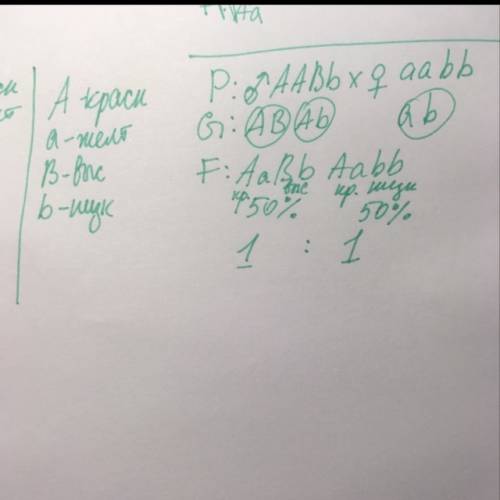 А-красн
а-желт
В-выс
b-низк
P: ♂ AABb x ♀ aabb
G: AB Ab ab
F: AaBb Aabb
кр. выс кр. низк
50% 50%
1 : 1